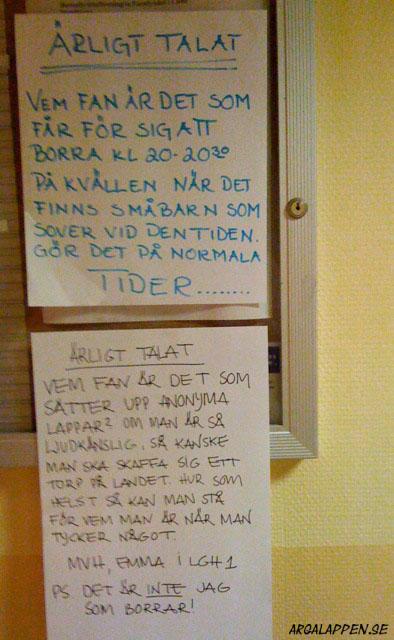 ÄRLIGT TALAT
VEM FAN ÄR DET SOM
FÅR FÖR SIG ATT
BORRA KL 20-20³⁰
PÅ KVÄLLEN NÄR DET
FINNS SMÅBARN SOM
SOVER VID DEN TIDEN.
GÖR DET PÅ NORMALA
TIDER........
ÄRLIGT TALAT
VEM FAN ÄR DET SOM
SÄTTER UPP ANONYMA
LAPPAR? OM MAN ÄR SÅ
LJUDKÄNSLIG, SÅ KANSKE
MAN SKA SKAFFA SIG ETT
TORP PÅ LANDET. HUR SOM
HELST SÅ KAN MAN STÅ
FÖR VEM MAN ÄR NÄR MAN
TYCKER NÅGOT.
MVH, EMMA I LGH 1
PS. DET ÄR INTE JAG
SOM BORRAR!
ARGALAPPEN.SE